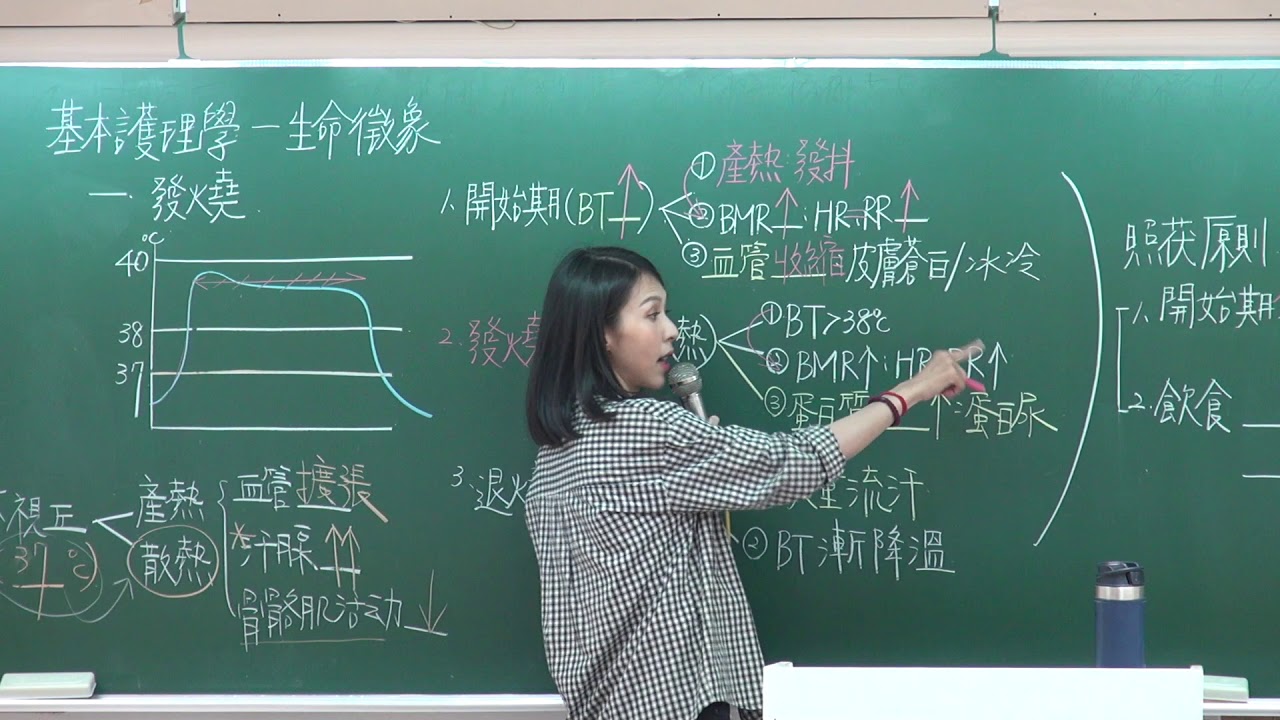 基本護理學－生命徵象
一. 發燒
℃
40
38
37
視丘
37℃)
產熱
散熱
血管擴張
*汗腺↑↑
骨骼肌活动↓
1. 開始期(BT↑)
①產熱:發抖
②BMR↑:HR、RR↑
③血管收縮皮膚蒼白/冰冷
2. 發燒
熱)
①BT>38℃
②BMR↑:HR、RR↑
③蛋白質 ↑:蛋白尿
3. 退
流汗
②BT漸降溫
照護原則
1. 開始期
2. 飲食